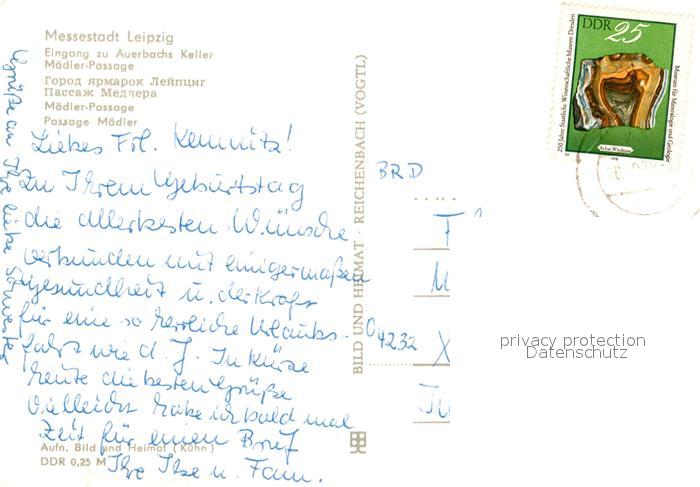 Messestadt Leipzig
Eingang zu Auerbachs Keller
Mädler-Passage
Город ярмарок Лейпциг
Пассаж Медлера
Mädler-Passage
Passage Mädler
Liebes Frl. Kemnitz!
Zu Ihrem Geburtstag
die allerbesten Wünsche
verbunden mit einigermaßen
Gesundheit u. der Kraft
für eine so herrliche Urlaubs-
fahrt wie d. J. In Kürze
heute die besten Grüße
Vielleicht habe ich bald mal
Zeit für einen Brief
Ihre Ilse u. Fam.
Grüße an Ihre liebe Schwester
Aufn. Bild und Heimat (Kühn)
DDR 0,25 M
BILD UND HEIMAT · REICHENBACH (VOGTL)
BRD
4232 X
DDR 25
250 Jahre Staatliche Wissenschaftliche Museen Dresden
Museum für Mineralogie und Geologie
privacy protection
Datenschutz